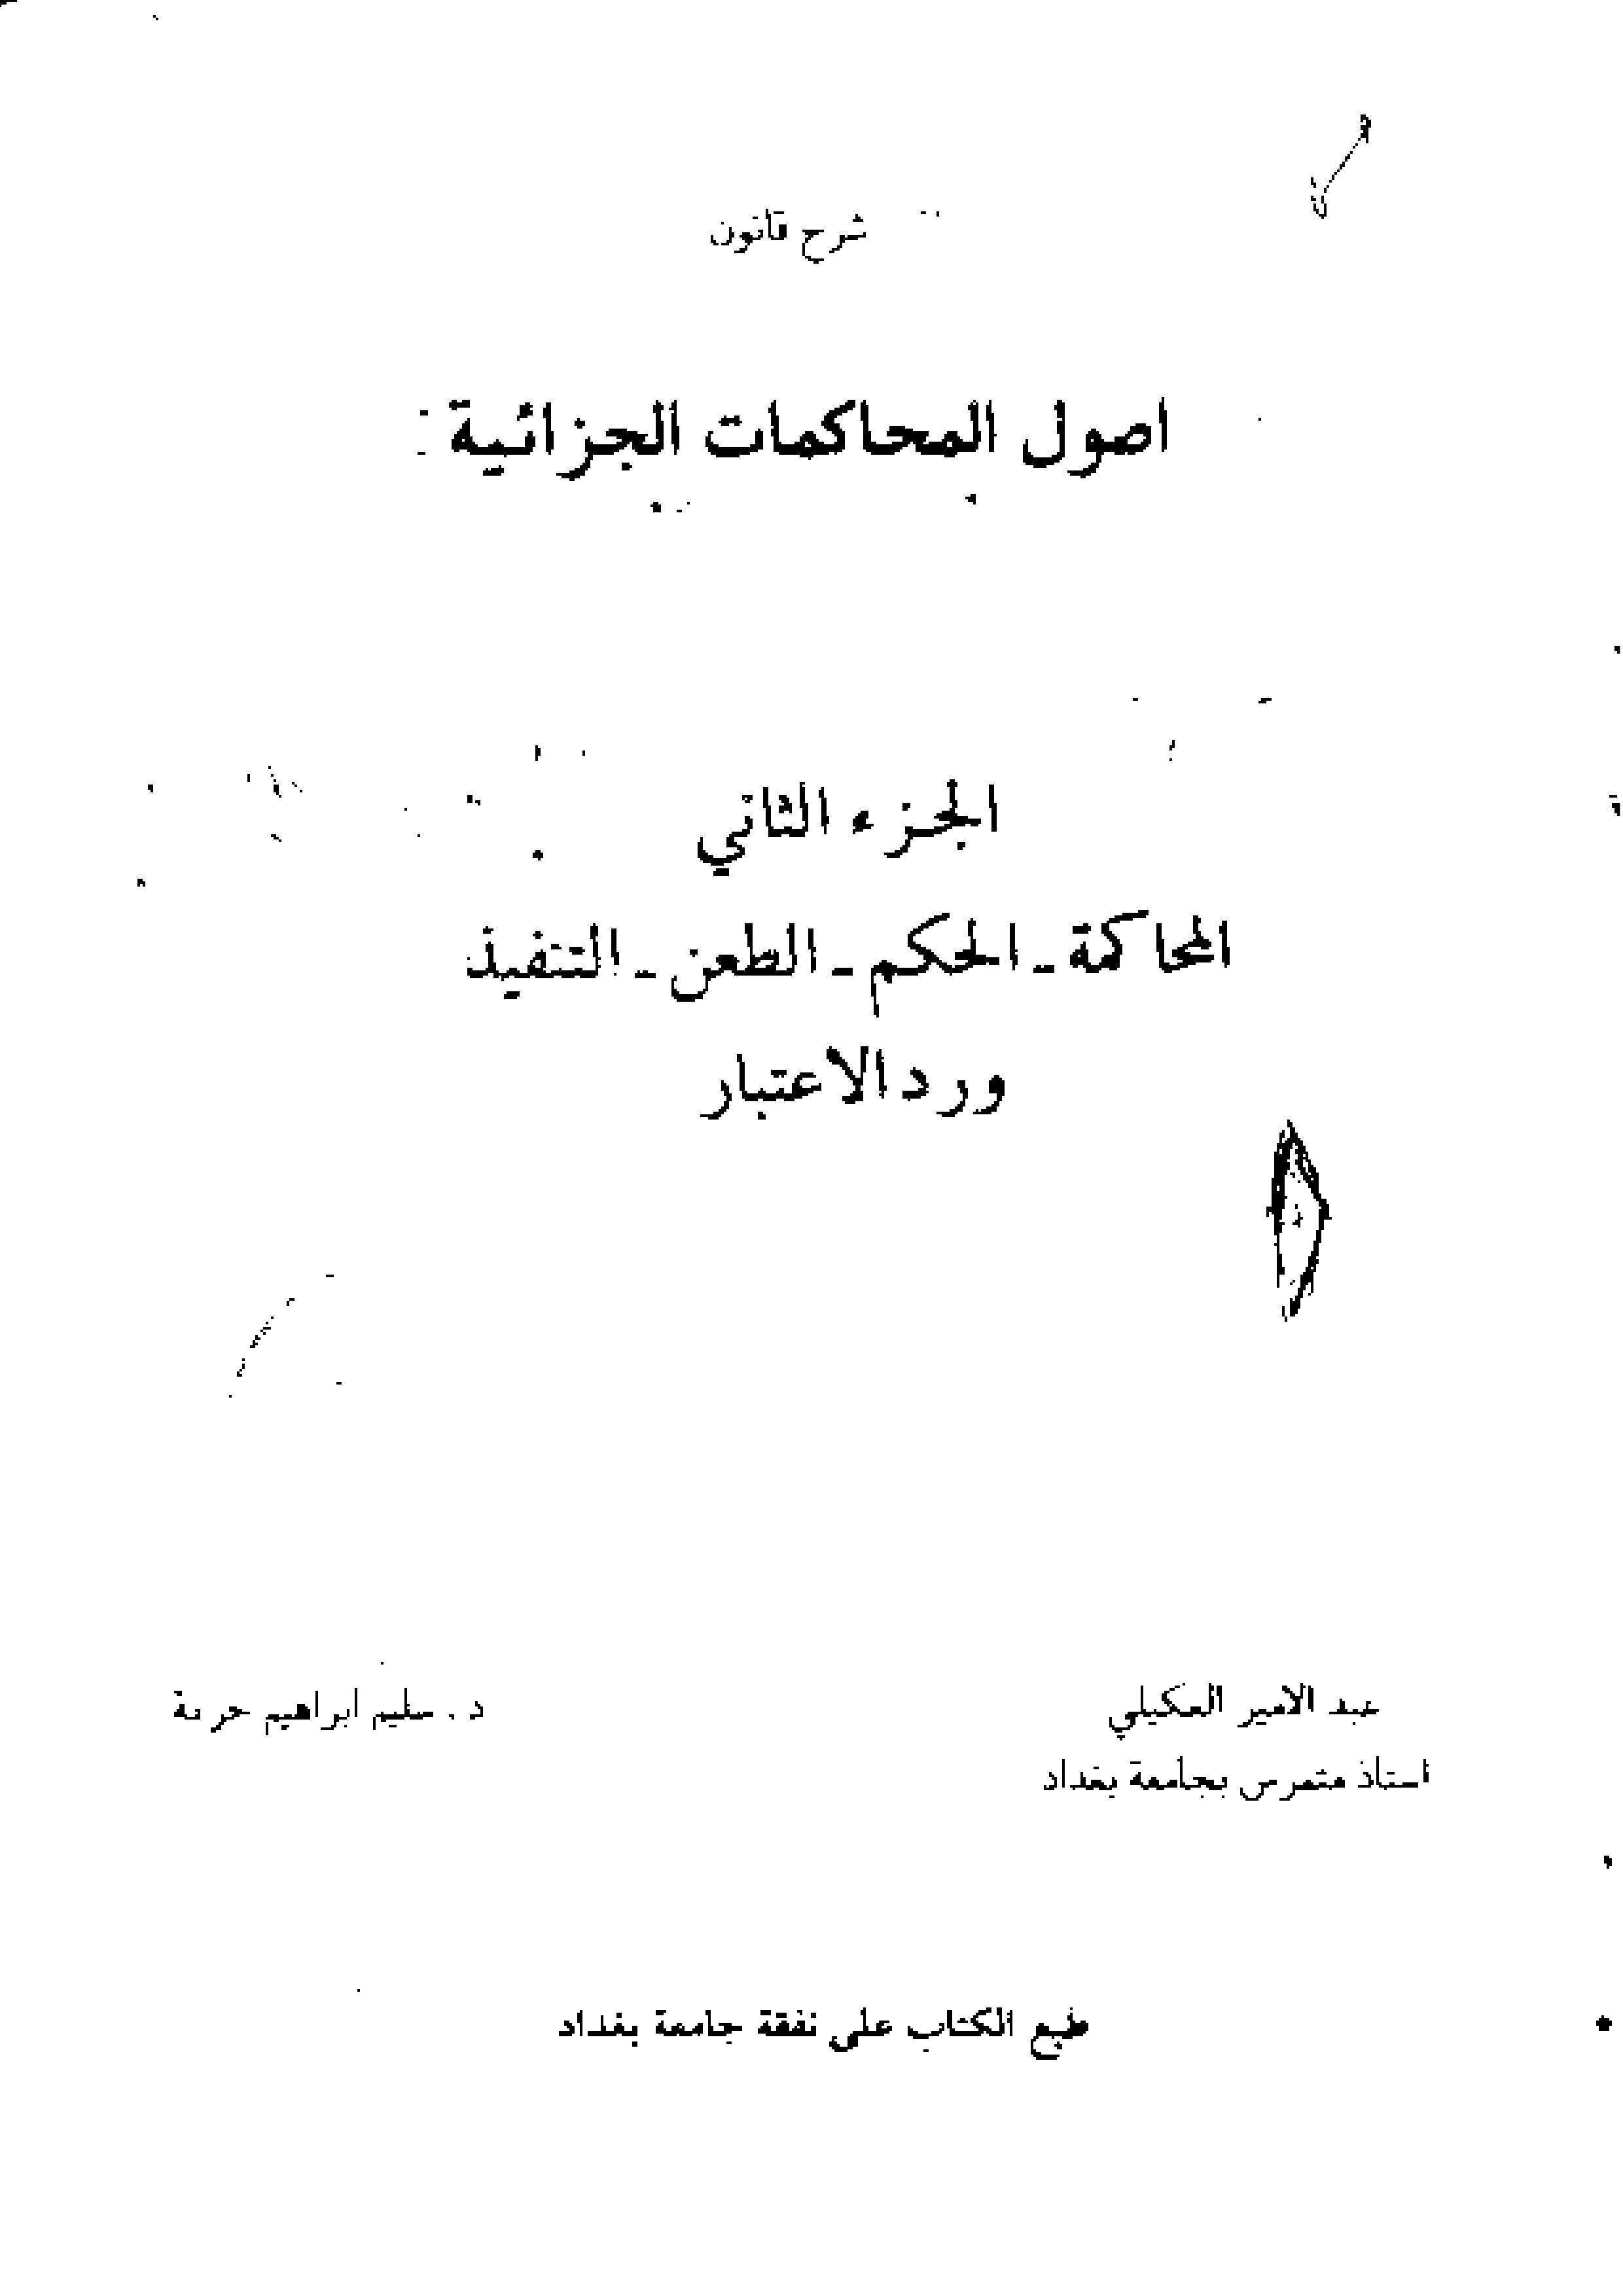 شرح قانون
اصول المحاكمات الجزائية
الجزء الثاني
المحاكمة - الحكم - الطعن - التنفيذ
ورد الاعتبار
عبد الامير العكيلي
د . سليم ابراهيم حربة
استاذ متمرس بجامعة بغداد
طبع الكتاب على نفقة جامعة بغداد